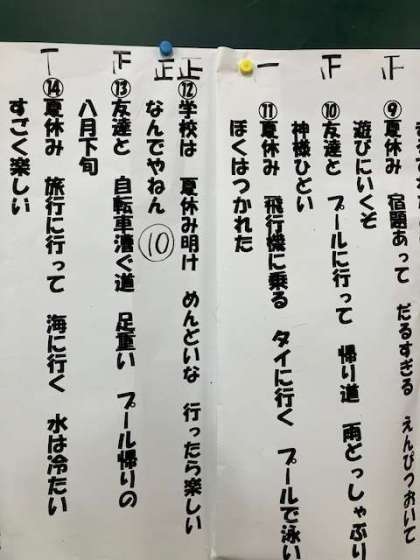 正
⑨夏休み 宿題あって だるすぎる えんぴつおいて
遊びにいくぞ
正
⑩友達と プールに行って 帰り道 雨どっしゃぶり
神様ひどい
一
⑪夏休み 飛行機に乗る タイに行く プールで泳い
ぼくはつかれた
正正
⑫学校は 夏休み明け めんどいな 行ったら楽しい
なんでやねん
⑩
正
⑬友達と 自転車漕ぐ道 足重い プール帰りの
八月下旬
⑭夏休み 旅行に行って 海に行く 水は冷たい
すごく楽しい